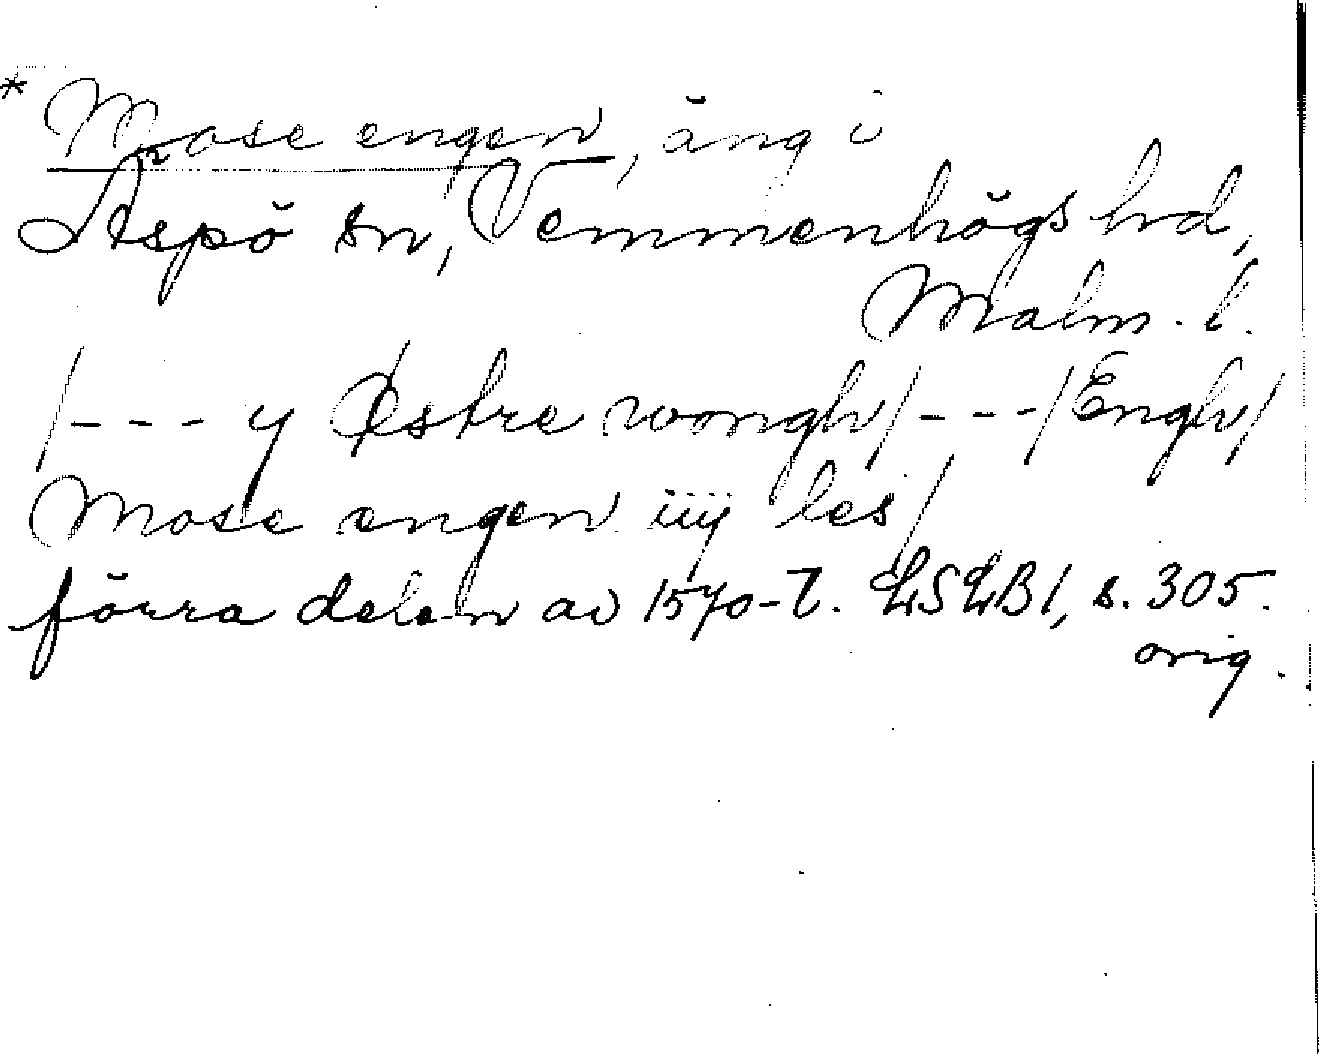 * Mose engen, äng i
Äspö sn, Vemmenhögs hd,
Malm. l.
/--- y Østre wongh/---/Engh/
Mose engen iiij les/
förra delen av 1570-t. LSLB I, s. 305.
orig.